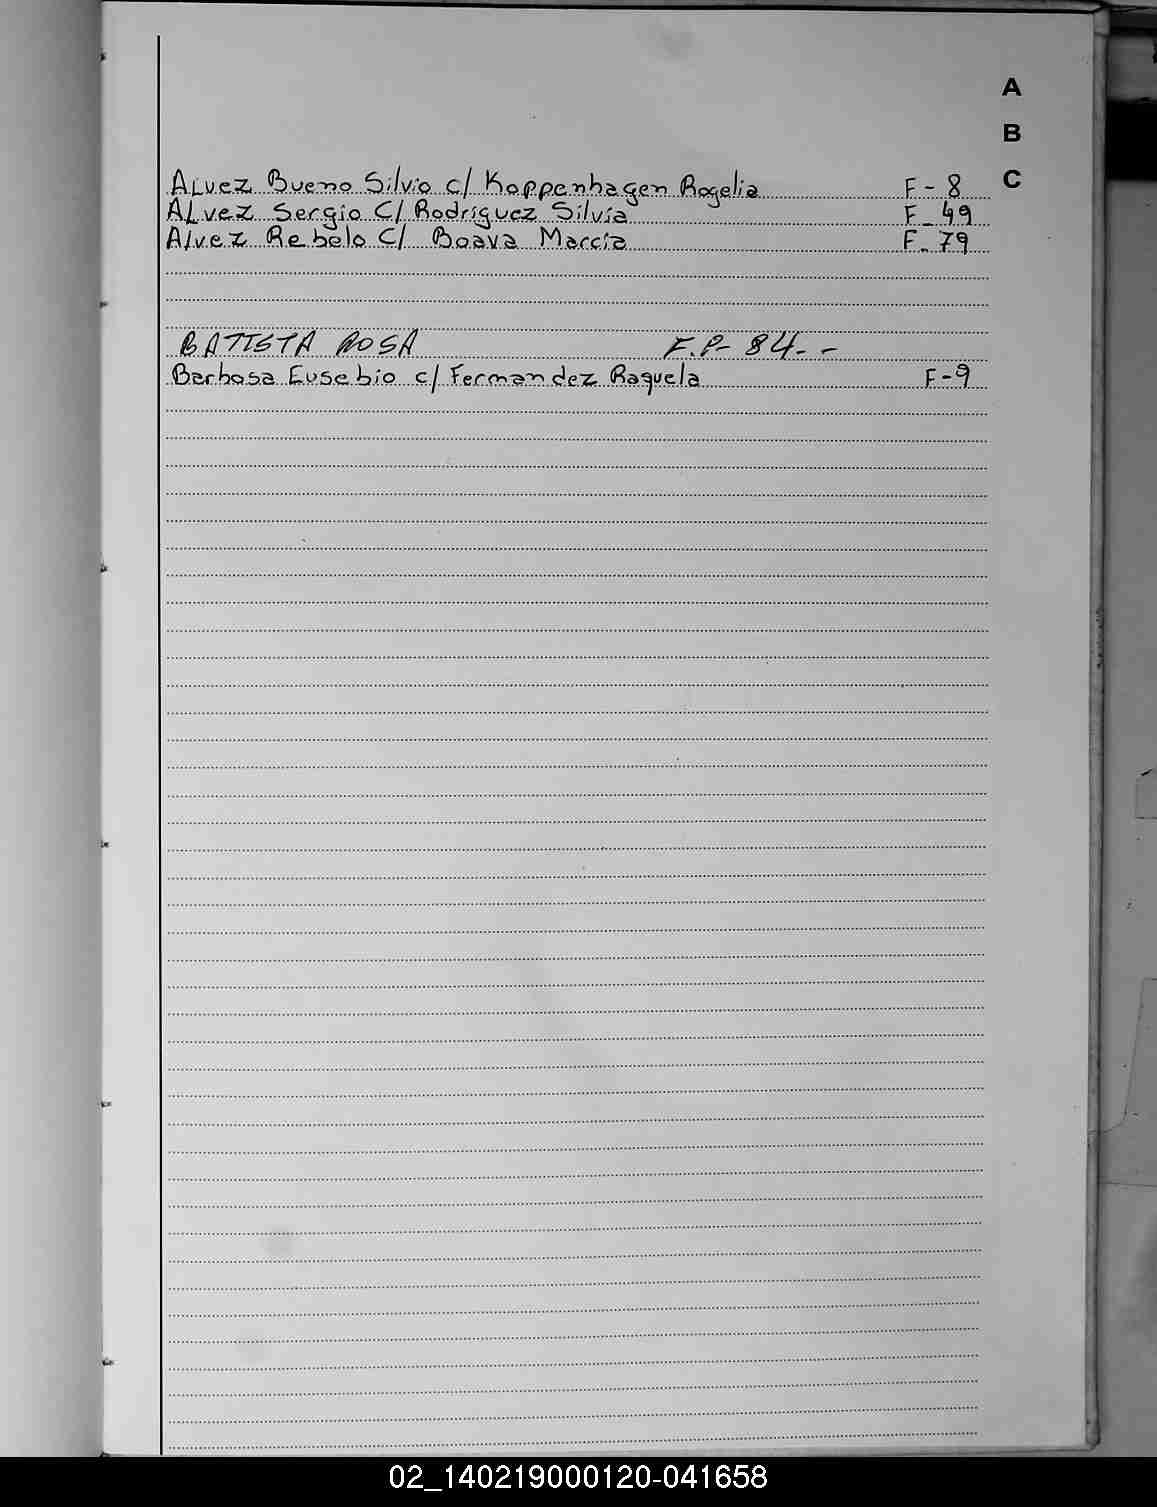 A
B
C
Alvez Bueno Silvio c/ Koppenhagen Rogelia F-8
Alvez Sergio C/ Rodríguez Silvia F-49
Alvez Rebelo C/ Boava Marcia F-79
BATISTA ROSA F.P- 84--
Barbosa Eusebio c/ Fernandez Raquela F-9
02_140219000120-041658